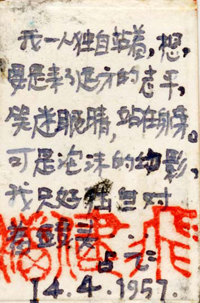 我一人独自站着,想,
要是来了远方的志平,
笑迷眼睛,站在身旁。
可是泡沫的幻影,
我只好独自对
着
14.4.1957.